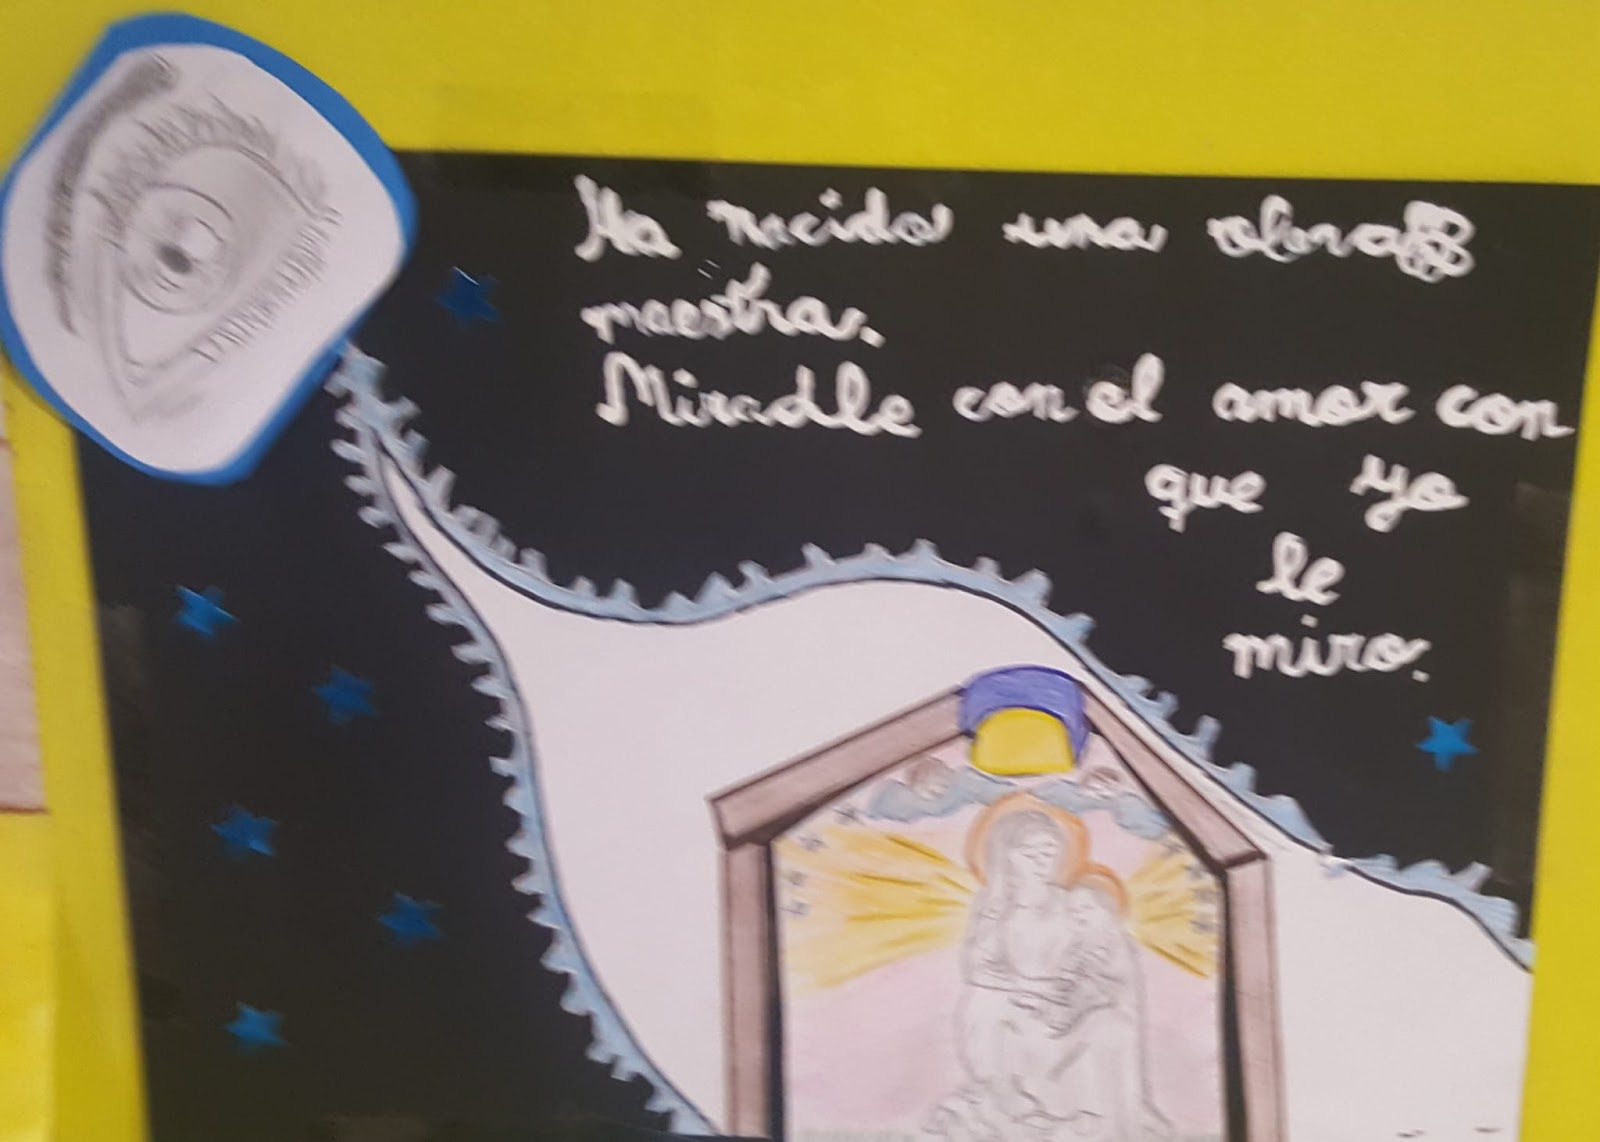 Ha nacido una obra
maestra.
Miradle con el amor con
que yo
le
miro.